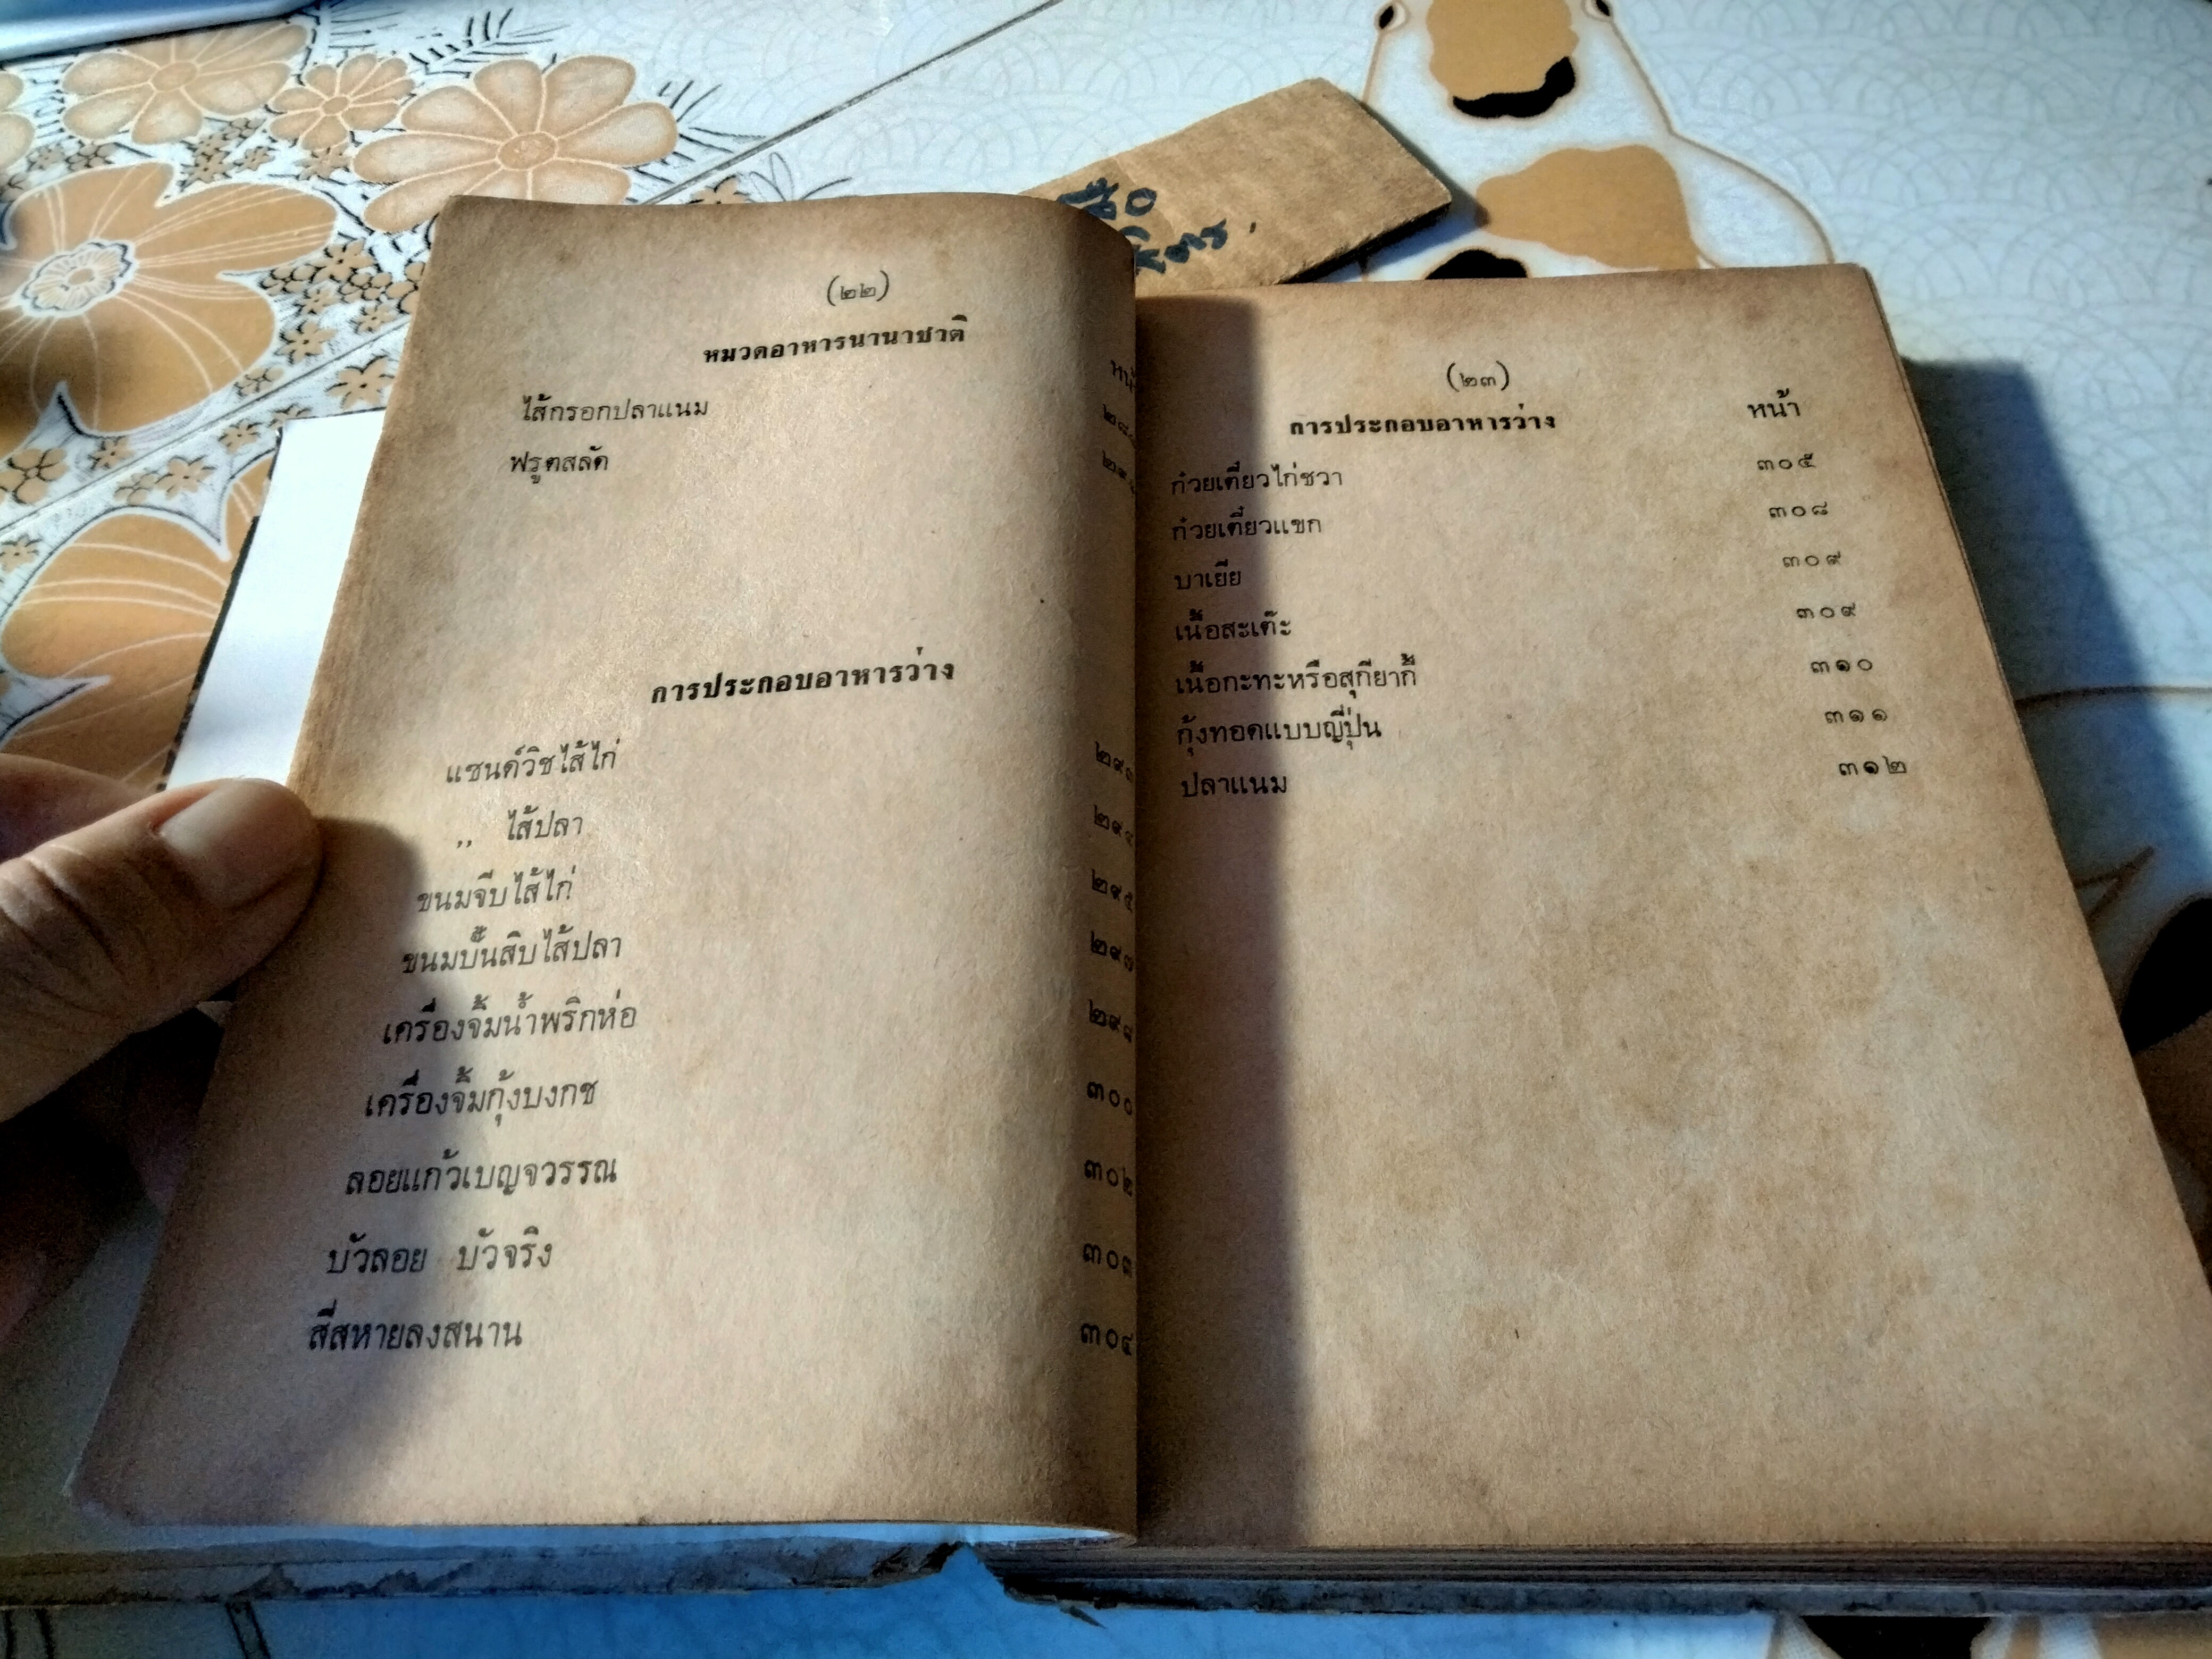 (๒๒)
หมวดอาหารนานาชาติ
ไส้กรอกปลาแนม
ฟรูตสลัด
การประกอบอาหารว่าง
แซนด์วิชไส้ไก่ ๒๙๓
,, ไส้ปลา
ขนมจีบไส้ไก่ ๒๙๕
ขนมปั้นสิบไส้ปลา ๒๙๗
เครื่องจิ้มน้ำพริกห่อ
เครื่องจิ้มกุ้งบงกช ๓๐๐
ลอยแก้วเบญจวรรณ ๓๐๒
บัวลอย บัวจริง ๓๐๓
สี่สหายลงสนาน ๓๐๔
(๒๓)
การประกอบอาหารว่าง หน้า
ก๋วยเตี๋ยวไก่ชวา ๓๐๕
ก๋วยเตี๋ยวแขก ๓๐๘
บาเยีย ๓๐๙
เนื้อสะเต๊ะ ๓๐๙
เนื้อกะทะหรือสุกียากี้ ๓๑๐
กุ้งทอดแบบญี่ปุ่น ๓๑๑
ปลาแนม ๓๑๒